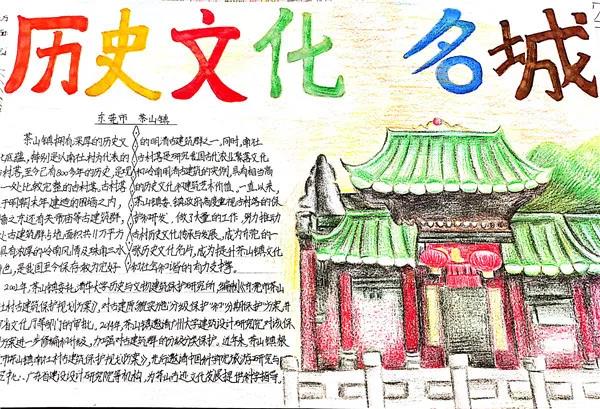 历史文化 名城
东莞市 茶山镇
茶山镇拥有深厚的历史文
化底蕴,特别是以南社村为代表的
古村落,至今已有800多年的历史,是现
一处比较完整的古村落,古村落
于明朝末年建造的围墙之内,
墙之东还有关帝庙等古建筑群,
处古建筑群占地面积共11万千方
具有浓厚的岭南风情及珠角水
色,是我国至今保存较为完好
的明清古建筑群之一,同时,南社
古村落是研究我国古代农业聚落文化
和岭南明清古建筑的实例,具有相当高
的历史文化和建筑艺术价值,一直以来,
茶山镇委、镇政府高度重视古村落的保
护和研发,做了大量的工作,努力推动
古村历史文化传承与发展,成为东莞的一
张历史文化名片,成为提升茶山镇文化
和社会知名的有力支撑。
2002年,茶山镇委托清华大学历史与文物建筑保护研究所,编制《东莞市茶山
社村古建筑保护规划方案》,对古建筑群采取分级保护和分期保护方案,并
省文化厅等部门的审批。2014年,茶山镇邀请广州大学建筑设计研究院对该保
方案进一步修编和升级,加强对古建筑群的分级分类保护。近年来,茶山镇根
市茶山镇南社村古建筑保护规划方案》,先后邀请中国科学院旅游研究与
广东省建设设计研究院等机构,为茶山古迹文化发展提供科学指导。